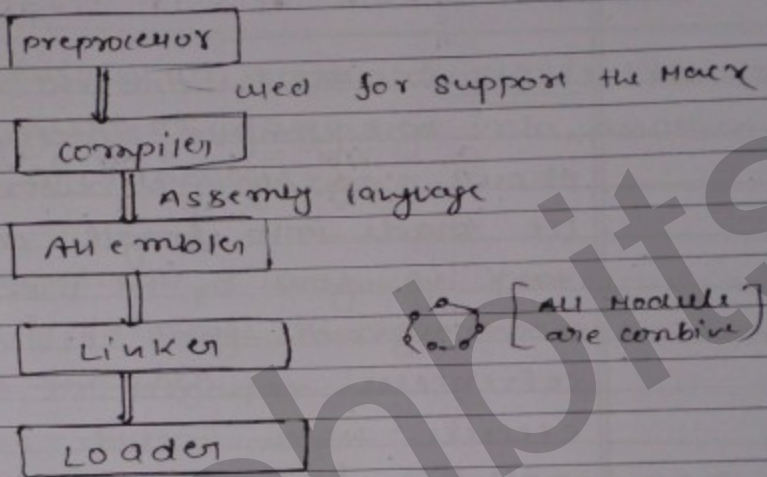 preprocessor
used for support the Macr
compiler
Assembly language
Assembler
Linker
[All Module
are conbive]
Loader
hbits